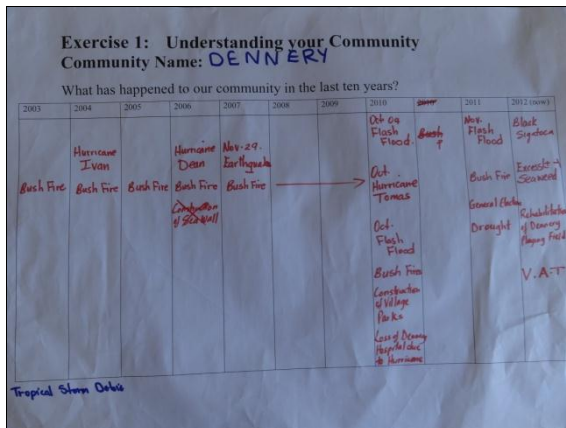 Exercise 1: Understanding your Community
Community Name: DENNERY
What has happened to our community in the last ten years?
2003 2004 2005 2006 2007 2008 2009 2010 2010 2011 2012 (now)
Bush Fire
Hurricane
Ivan
Bush Fire
Bush Fire
Hurricane
Dean
Bush Fire
Construction
of Sea Wall
Nov-29.
Earthquake
Bush Fire
Oct 09
Flash
Flood.
Oct.
Hurricane
Tomas
Oct.
Flash
Flood
Bush Fire
Construction
of Village
Parks
Loss of Dennery
Hospital due
to Hurricane
Bush
Nov.
Flash
Flood
Bush Fire
General Election
Drought
Black
Sigatoca
Seaweed
Rehabilitation
of Dennery
Playing Field
V.A.T
Tropical Storm Debie